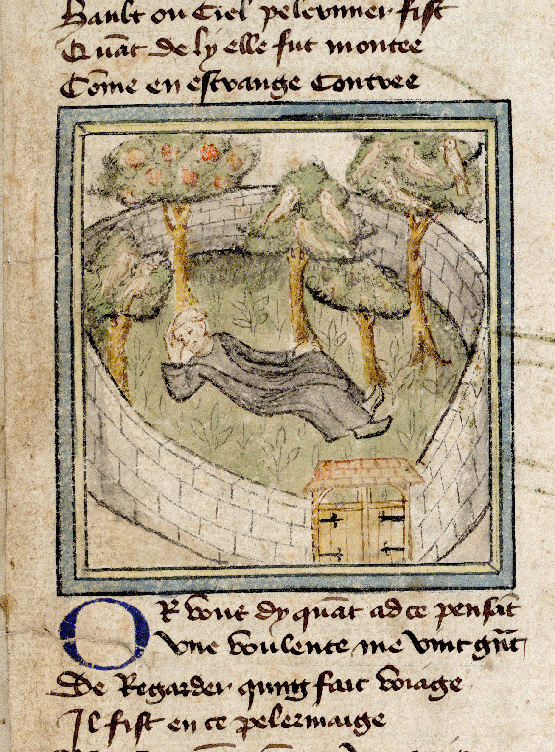 Hault ou Ciel pelerinner fist
Quāt de ly elle fut montee
Cōme en estrange Contree
OR vous dy quāt ad ce pensāt
Vne voulente me vint gn̄t
De Regarder qung fait voiage
Il fist en ce pelermaige